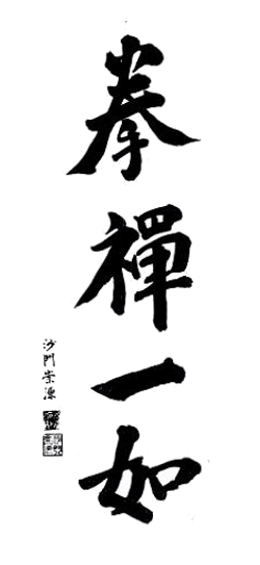 拳禪一如
沙門崇源